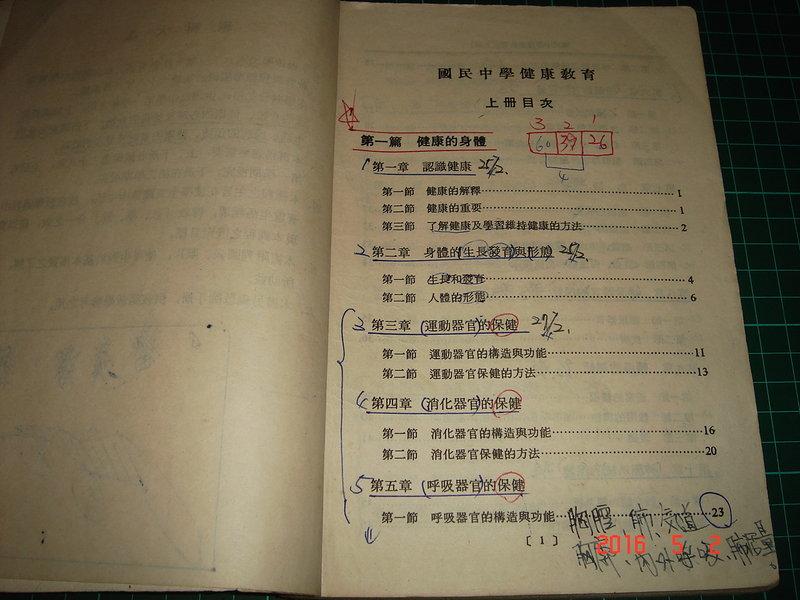 國民中學健康教育
上冊目次
3 2 1
第一篇 健康的身體 60 39 26
4
1 第一章 認識健康 25/2.
第一節 健康的解釋 1
第二節 健康的重要 1
第三節 了解健康及學習維持健康的方法 2
2 第二章 身體的(生長發育)與(形態) 25/2.
第一節 生長和發育 4
第二節 人體的形態 6
3 第三章 (運動器官)的保健 27/2.
第一節 運動器官的構造與功能 11
第二節 運動器官保健的方法 13
4 第四章 (消化器官)的保健
第一節 消化器官的構造與功能 16
第二節 消化器官保健的方法 20
5 第五章 (呼吸器官)的保健
第一節 呼吸器官的構造與功能 23
胸腔、肺、
〔 1 〕
內外呼吸、肺
2016 5 2